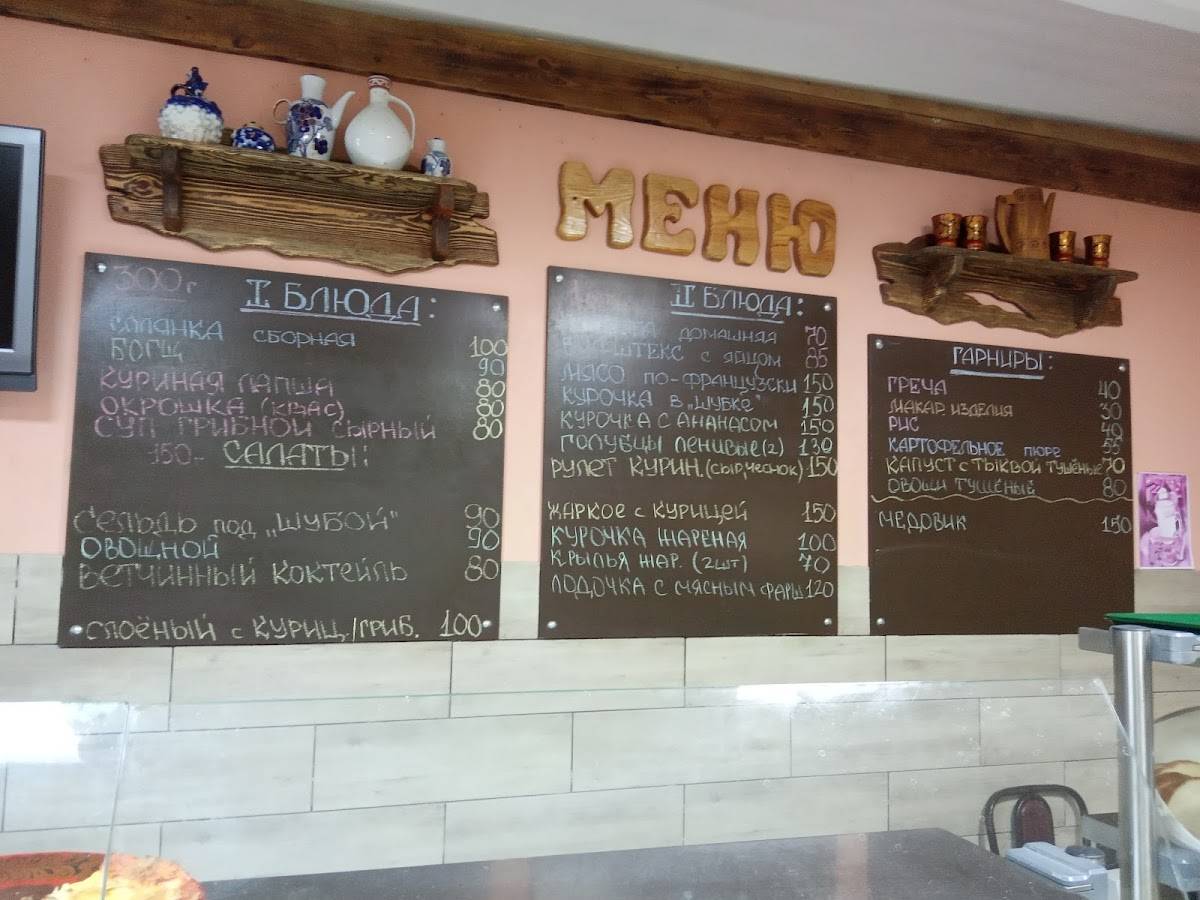 МЕНЮ
300г
I БЛЮДА:
СОЛЯНКА СБОРНАЯ 100
БОРЩ 90
КУРИНАЯ ЛАПША 80
ОКРОШКА (КВАС) 80
СУП ГРИБНОЙ СЫРНЫЙ 80
150- САЛАТЫ:
СЕЛЬДЬ ПОД „ШУБОЙ" 90
ОВОЩНОЙ 90
ВЕТЧИННЫЙ КОКТЕЙЛЬ 80
СЛОЁНЫЙ С КУРИЦ./ГРИБ. 100
II БЛЮДА:
ДОМАШНЯЯ 70
С ЯЙЦОМ 85
МЯСО ПО-ФРАНЦУЗСКИ 150
КУРОЧКА В „ШУБКЕ" 150
КУРОЧКА С АНАНАСОМ 150
ГОЛУБЦЫ ЛЕНИВЫЕ (2) 130
РУЛЕТ КУРИН. (СЫР, ЧЕСНОК) 150
ЖАРКОЕ С КУРИЦЕЙ 150
КУРОЧКА ЖАРЕНАЯ 100
КРЫЛЬЯ ЖАР. (2ШТ) 70
ЛОДОЧКА С МЯСНЫМ ФАРШ 120
ГАРНИРЫ:
ГРЕЧА 40
МАКАР ИЗДЕЛИЯ 30
РИС 40
КАРТОФЕЛЬНОЕ ПЮРЕ 55
КАПУСТ С ТЫКВОЙ ТУШЁНЫЕ 70
ОВОЩИ ТУШЁНЫЕ 80
МЕДОВИК 150